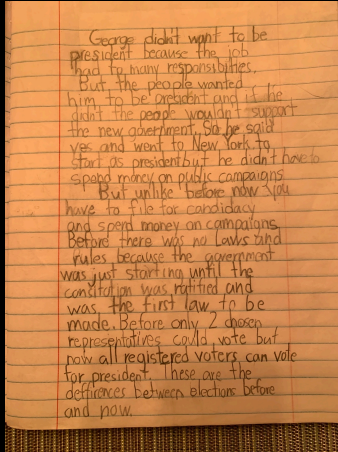 George didn't want to be
president because the job
had to many responsibities.
But, the people wanted
him to be president and if he
didn't the people wouldn't support
the new government. So, he said
yes and went to New York to
start as president but he didn't have to
spend money on public campaigns
But unlike before now you
have to file for candidacy
and spend money on campaigns.
Before there was no Laws and
rules because the government
was just starting until the
constitution was ratified and
was the first law to be
made. Before only 2 chosen
representatives could vote but
now all registered voters can vote
for president. These are the
deffirences between elections before
and now.